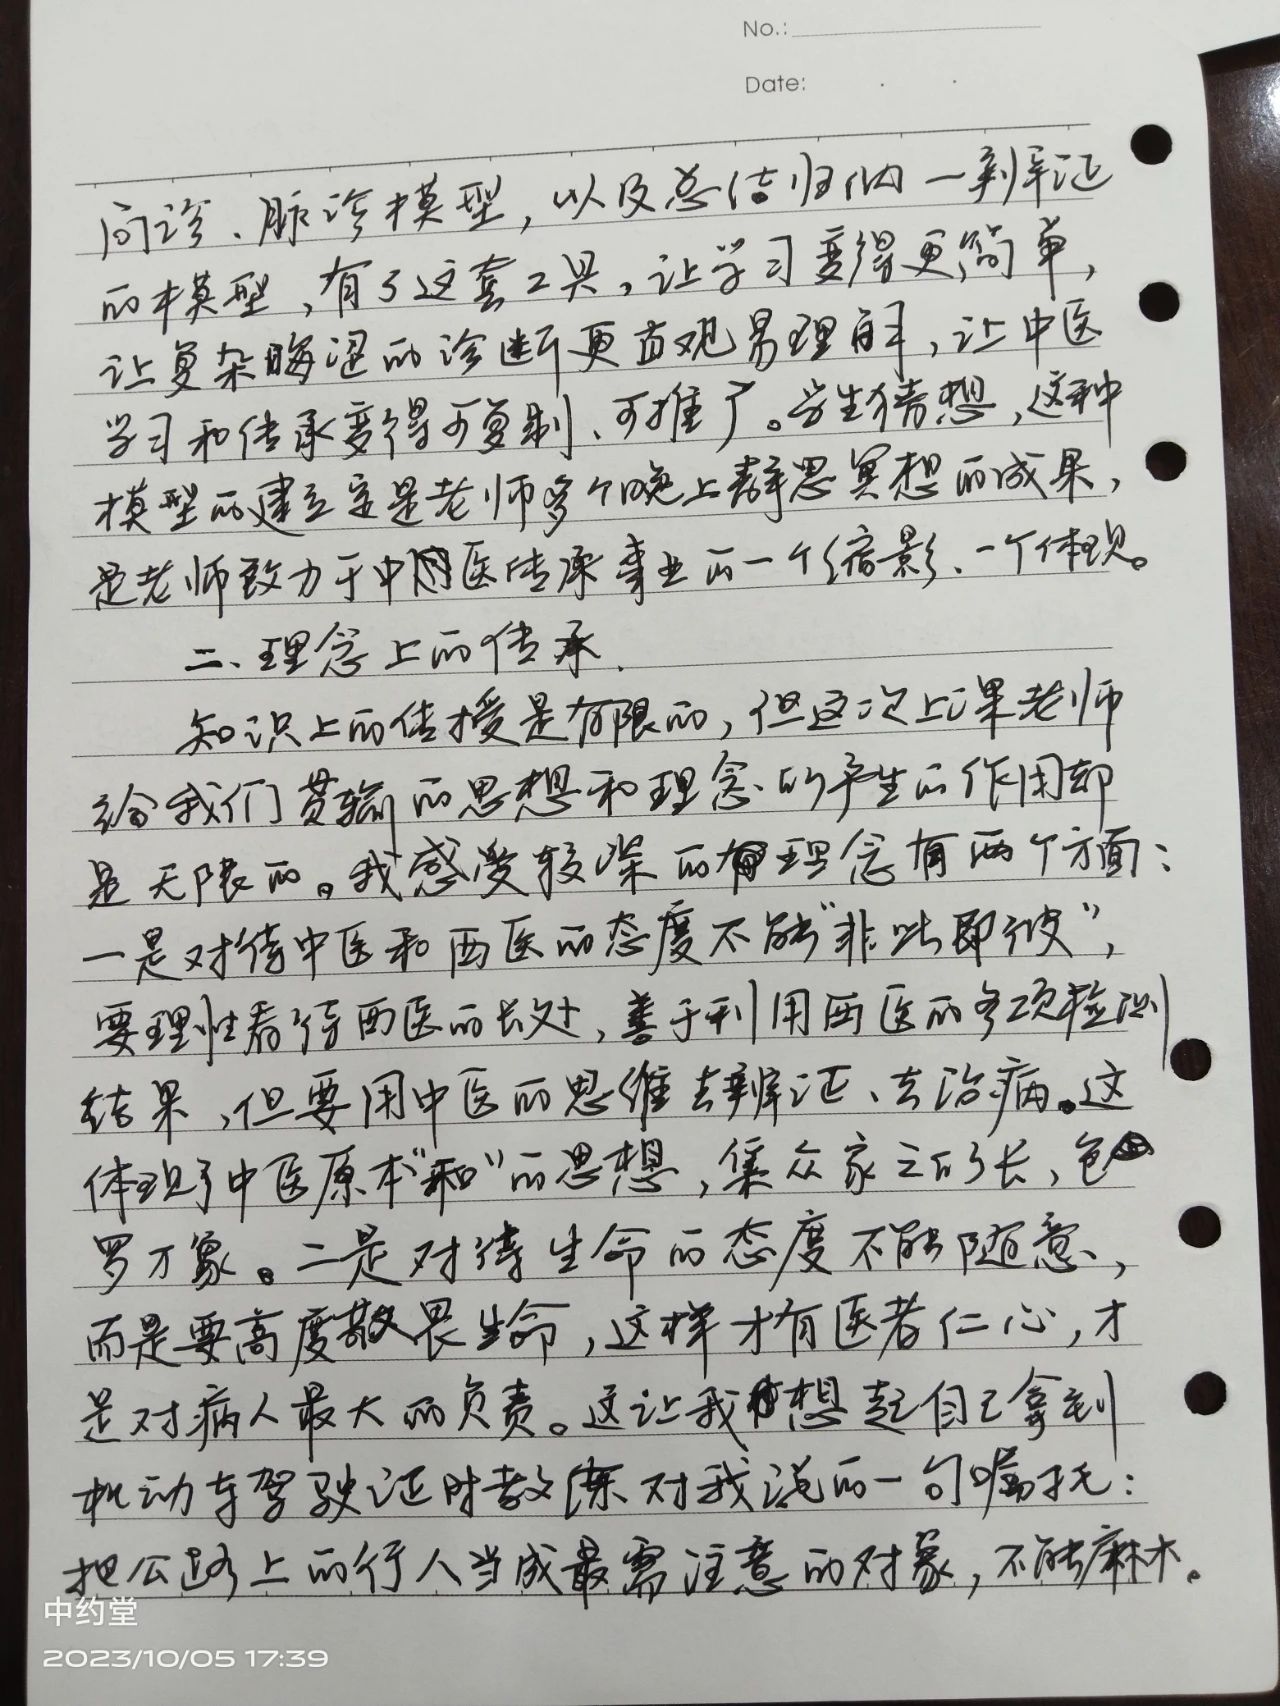 No.:
Date:
问诊、脉诊模型，以及总结归纳一剥辛证
的模型，有了这套工具，让学习变得更简单，
让复杂晦涩的诊断更直观易理解，让中医
学习和传承变得可复制、可推广。学生猜想，这种
模型的建立定是老师多个晚上静思冥想的成果，
是老师致力于中医传承事业的一个缩影、一个体现。
二、理念上的传承.
知识上的传授是有限的，但这次上课老师
给我们贯输的思想和理念的产生的作用却
是无限的。我感受较深的理念有两个方面：
一是对待中医和西医的态度不能“非此即彼”，
要理性看待西医的长处，善于利用西医的各项检测
结果，但要用中医的思维去辨证、去治病。这
体现了中医原本“和”的思想，集众家之所长，包
罗万象。二是对待生命的态度不能随意，
而是要高度敬畏生命，这样才有医者仁心，才
是对病人最大的负责。这让我想起自己拿到
机动车驾驶证时教练对我说的一句嘱托：
把公路上的行人当成最需注意的对象，不能麻木。
中约堂
2023/10/05 17:39